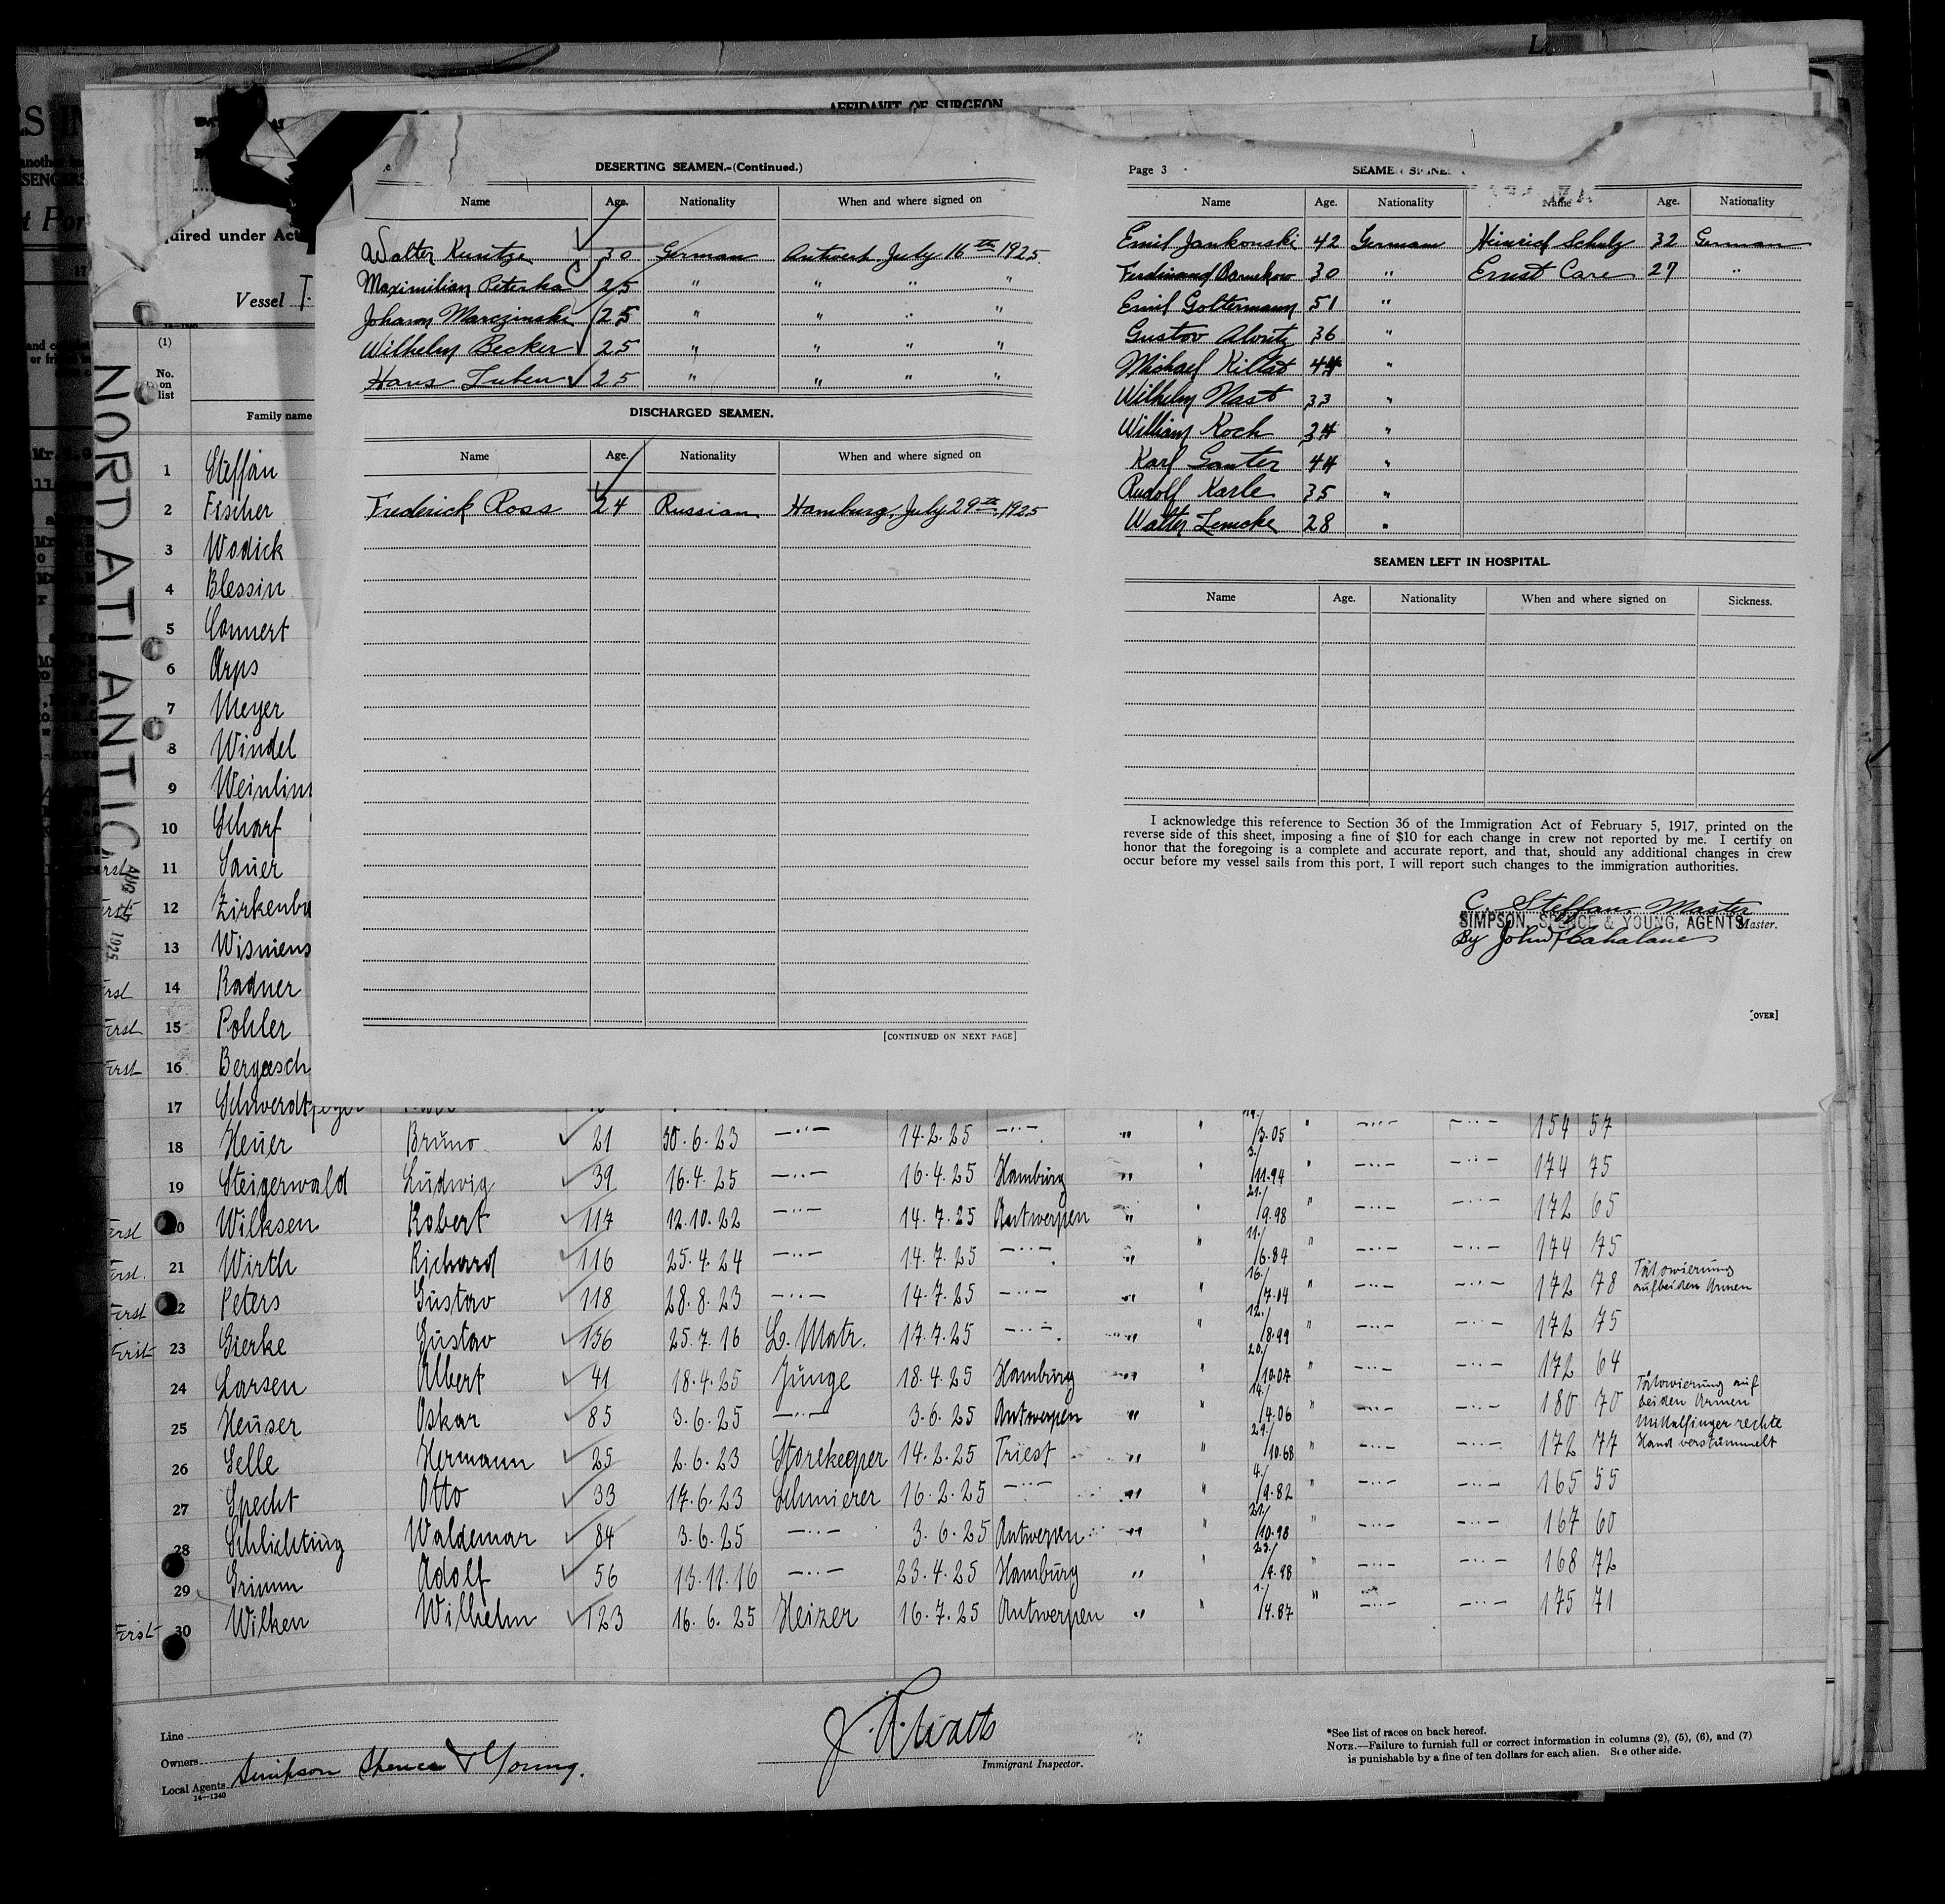 AFFIDAVIT OF SURGEON
DESERTING SEAMEN.-(Continued.)
Name Age. Nationality When and where signed on
Walter Kunitze 30 German Antwerp July 16th 1925.
Maximilian Peterka 25 " " " "
Johann Marczinski 25 " " " "
Wilhelm Becker 25 " " " "
Hans Luben 25 " " " "
DISCHARGED SEAMEN.
Name Age. Nationality When and where signed on
Frederick Ross 24 Russian Hamburg, July 29th, 1925
[CONTINUED ON NEXT PAGE]
Page 3
SEAMEN SIGNED
Name Age. Nationality Name Age. Nationality
Emil Jankowski 42 German Heinrich Schulz 32 German
Ferdinand Barnekow 30 " Ernst Care 27 "
Emil Goltermann 51 "
Gustav 36 "
Michael Killat 44 "
Wilhelm Nast 33 "
William Koch 34 "
Karl Ganter 44 "
Rudolf Karle 35 "
Walter Lemcke 28 "
SEAMEN LEFT IN HOSPITAL.
Name Age. Nationality When and where signed on Sickness.
I acknowledge this reference to Section 36 of the Immigration Act of February 5, 1917, printed on the
reverse side of this sheet, imposing a fine of $10 for each change in crew not reported by me. I certify on
honor that the foregoing is a complete and accurate report, and that, should any additional changes in crew
occur before my vessel sails from this port, I will report such changes to the immigration authorities.
C. Steffan, Master
SIMPSON, SPENCE & YOUNG, AGENTS Master.
By John F Cahalane
[OVER]
quired under Act
Vessel
NORD ATLANTIC
AUG 1925
(1)
No. on list
Family name
1 Steffan
2 Fischer
3 Wodick
4 Blessin
5 Connert
6 Arps
7 Meyer
8 Windel
9 Weinlin
10 Scharf
11 Sauer
12 Zirkenba
13 Wisniens
14 Radner
15 Pohler
16 Bergaesch
17 Schwerdtfeger
18 Heuer Bruno 21 30.6.23 —"— 14.2.25 —"— " " 19./3.05 " —"— —"— 154 57
19 Steigerwald Ludwig 39 16.4.25 —"— 16.4.25 Hamburg " " 3./11.94 " —"— —"— 174 75
20 Wilksen Robert 117 12.10.22 —"— 14.7.25 Antwerpen " " 21./9.98 " —"— —"— 172 65
21 Wirth Richard 116 25.4.24 —"— 14.7.25 —"— " " 11./6.84 " —"— —"— 174 75
22 Peters Gustav 118 28.8.23 —"— 14.7.25 —"— " " 16./7.04 " —"— —"— 172 78 Tätowierung auf beiden Armen
23 Gierke Gustav 136 25.7.16 L. Matr. 17.7.25 —"— " " 12./8.99 " —"— —"— 172 75
24 Larsen Albert 41 18.4.25 Junge 18.4.25 Hamburg " " 20./10.07 " —"— —"— 172 64
25 Heuser Oskar 85 3.6.25 —"— 3.6.25 Antwerpen " " 14./4.06 " —"— —"— 180 70 Tätowierung auf beiden Armen
26 Selle Hermann 25 2.6.23 Storekeeper 14.2.25 Triest " " 29./10.68 " —"— —"— 172 77 Mittelfinger rechte Hand verstümmelt
27 Specht Otto 33 17.6.23 Schmierer 16.2.25 —"— " " 4./9.82 " —"— —"— 165 55
28 Schlichting Waldemar 84 3.6.25 —"— 3.6.25 Antwerpen " " 22./10.98 " —"— —"— 167 60
29 Grimm Adolf 56 13.11.16 —"— 23.4.25 Hamburg " " 23./9.98 " —"— —"— 168 72
30 Wilken Wilhelm 123 16.6.25 Heizer 16.7.25 Antwerpen " " 1./4.87 " —"— —"— 175 71
Line
Owners
Local Agents Simpson Spence & Young.
14—1240
Immigrant Inspector.
*See list of races on back hereof.
NOTE.—Failure to furnish full or correct information in columns (2), (5), (6), and (7)
is punishable by a fine of ten dollars for each alien. See other side.